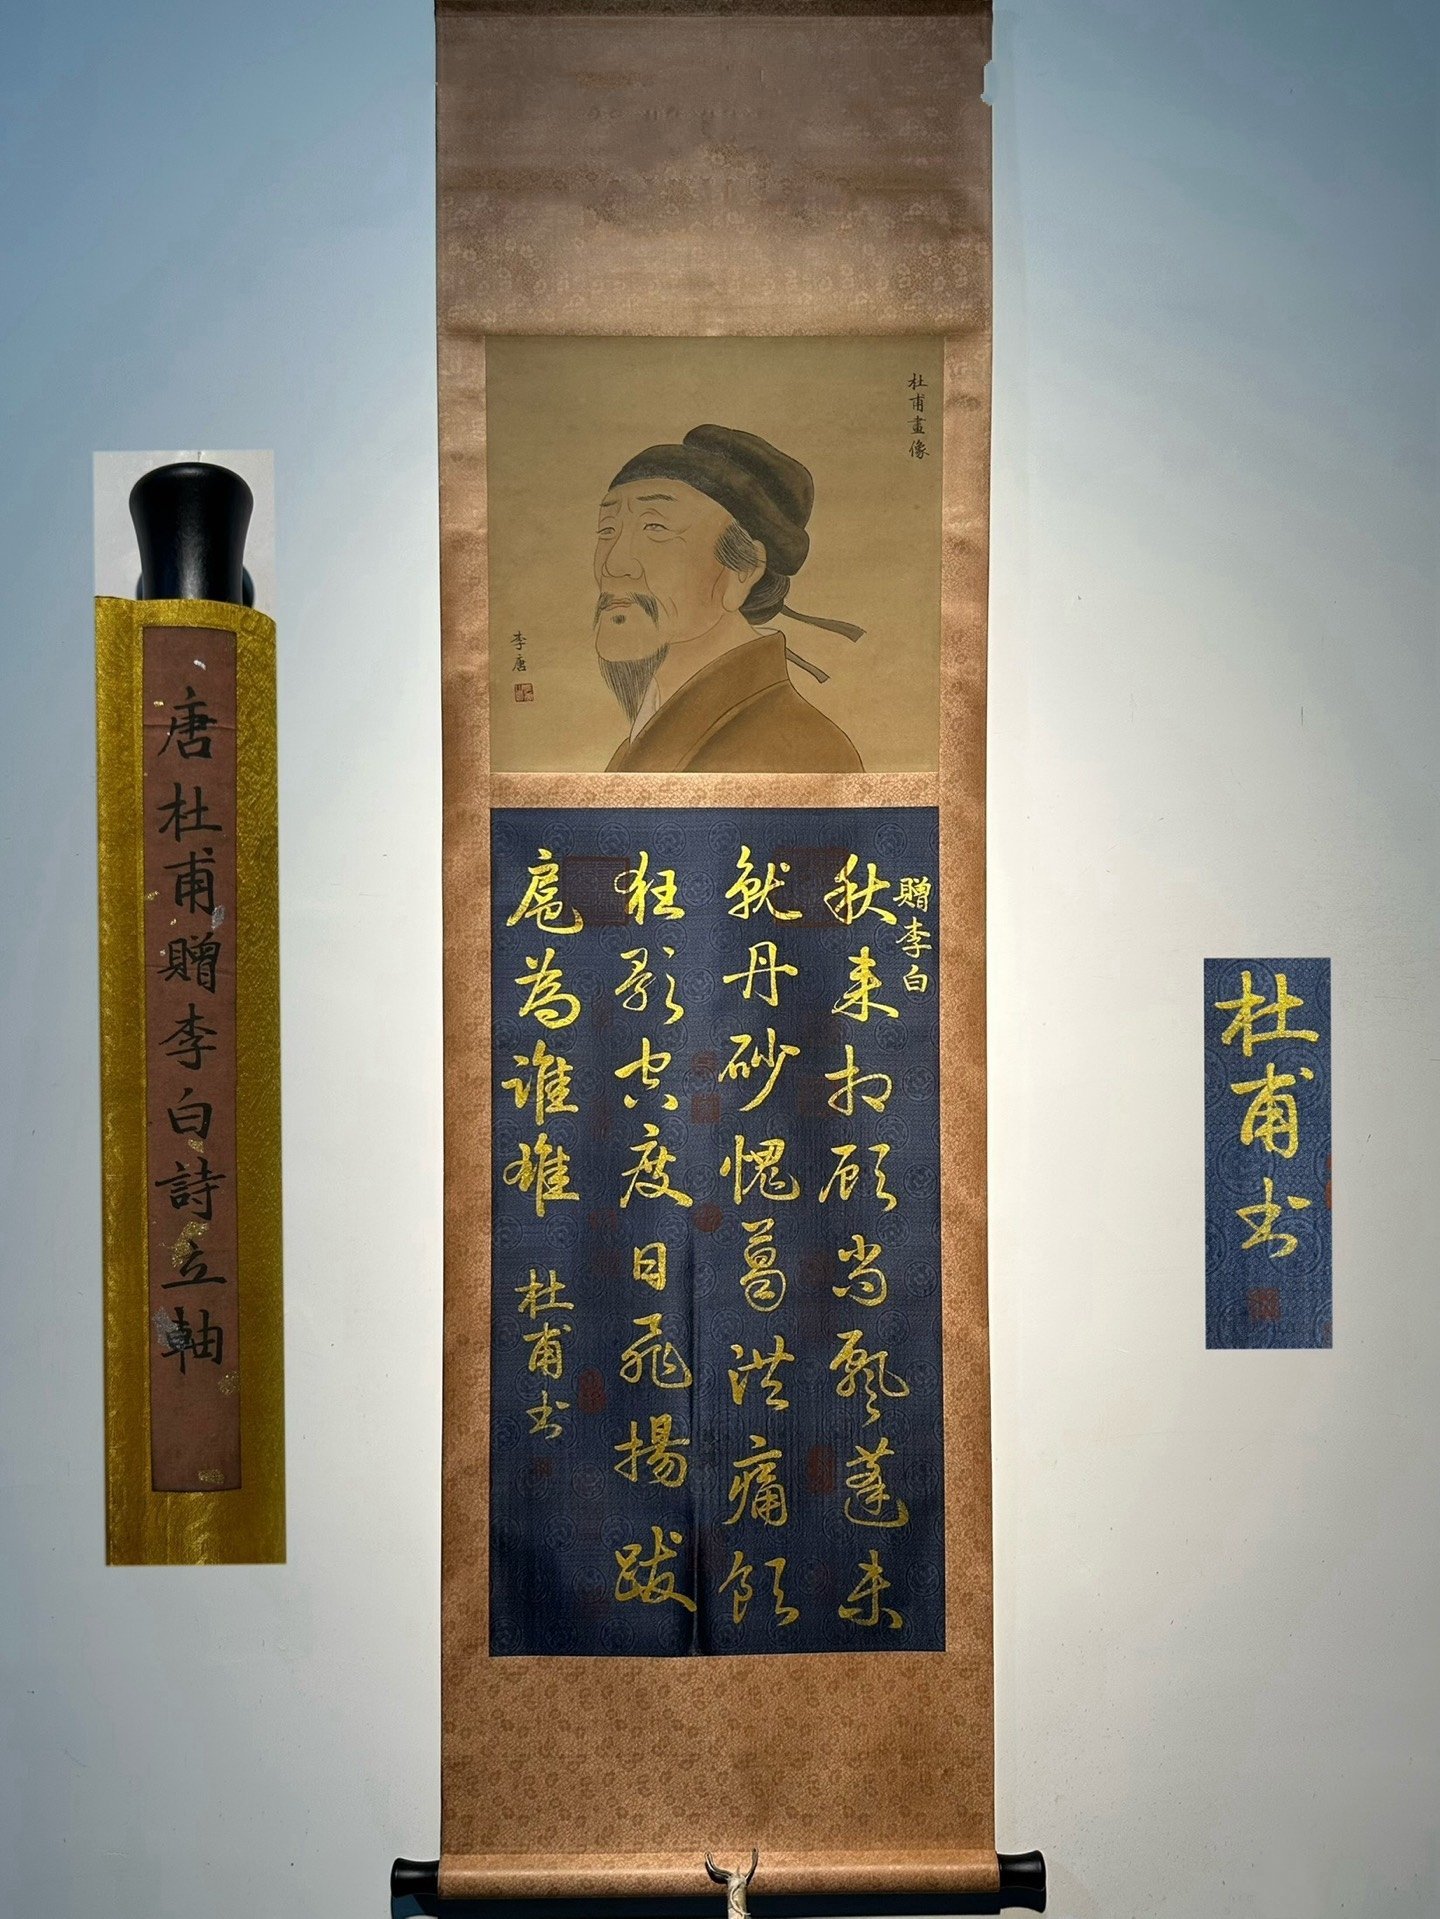 杜甫畫像
李唐
贈李白
秋来相顾尚飄蓬未
就丹砂愧葛洪痛飲
狂歌空度日飛揚跋
扈為誰雄
杜甫书
唐杜甫贈李白詩立軸
杜甫书